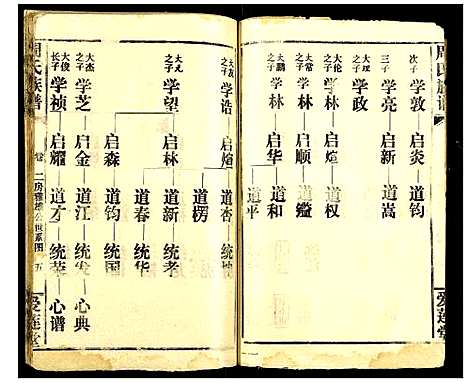 周氏族谱
爱莲堂
次子 学敦 启炎 道钧
三子 学亮 启新 道嵩
学政
大伦之子 学林 启煊 道权
大常之子 学林 启顺 道鑑
之子 学林 启华 道和
道平
之子 学诰 启煊 道杏 统
道楞
之子 学望 启林 道新 统孝
道春 统华
启森 道钧 统国
大杰之子 学芝 启金 道江 统发 心典
大俊长子 学祯 启耀 道才 统荣 心谱
周氏族谱
二房 公世系图 五
爱莲堂